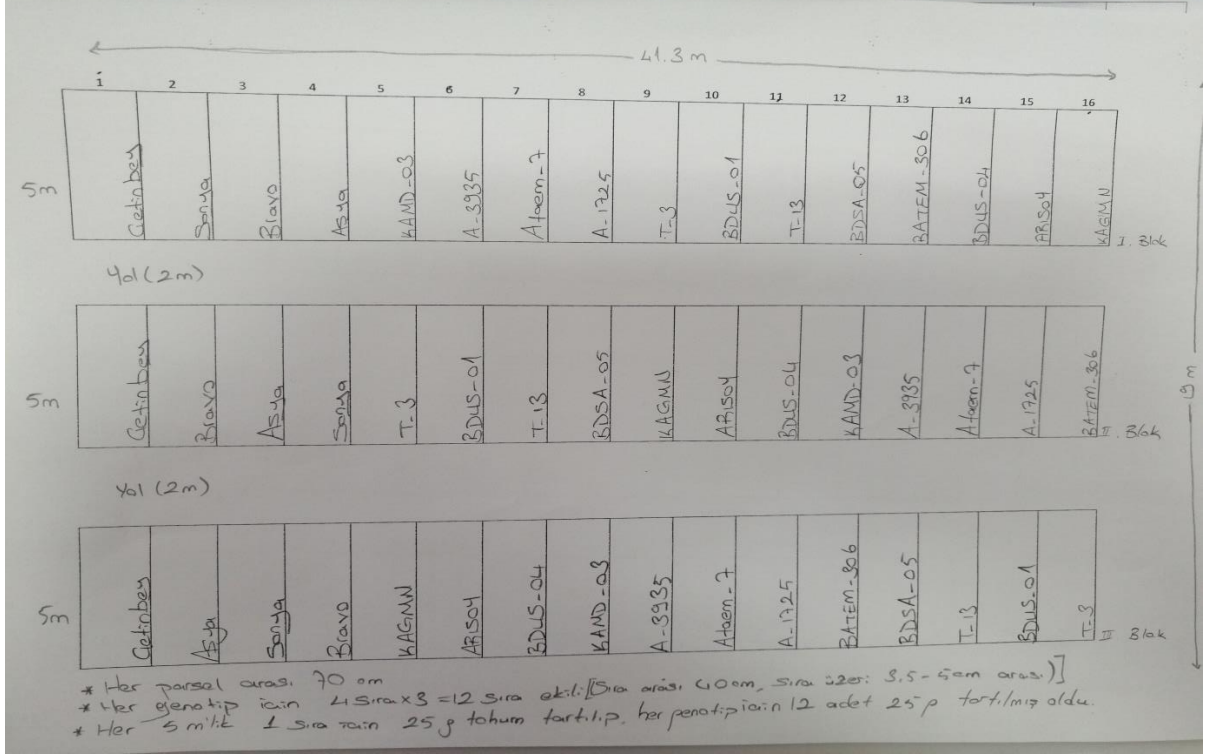 41.3 m
1 2 3 4 5 6 7 8 9 10 11 12 13 14 15 16
5m Çetinbey Sonya Bravo Asya KAMD-03 A-3935 Ataem-7 A-1725 T-3 BDUS-01 T-13 BDSA-05 BATEM-306 BDUS-04 ARISOY KAGMN I. Blok
Yol (2m)
5m Çetinbey Bravo Asya Sonya T-3 BDUS-01 T-13 BDSA-05 KAGMN ARISOY BDUS-04 KAMD-03 A-3935 Ataem-7 A-1725 BATEM-306 II. Blok
19 m
Yol (2m)
5m Çetinbey Asya Sonya Bravo KAGMN ARISOY BDUS-04 KAMD-03 A-3935 Ataem-7 A-1725 BATEM-306 BDSA-05 T-13 BDUS-01 T-3 Blok
* Her parsel arası 70 cm
* Her genotip için 4 sıra x 3 = 12 sıra ekili [(Sıra arası 40cm, sıra üzeri 3,5-5cm arası)]
* Her 5 m'lik 1 sıra için 25 g tohum tartılıp, her genotip için 12 adet 25 g tartılmış oldu.